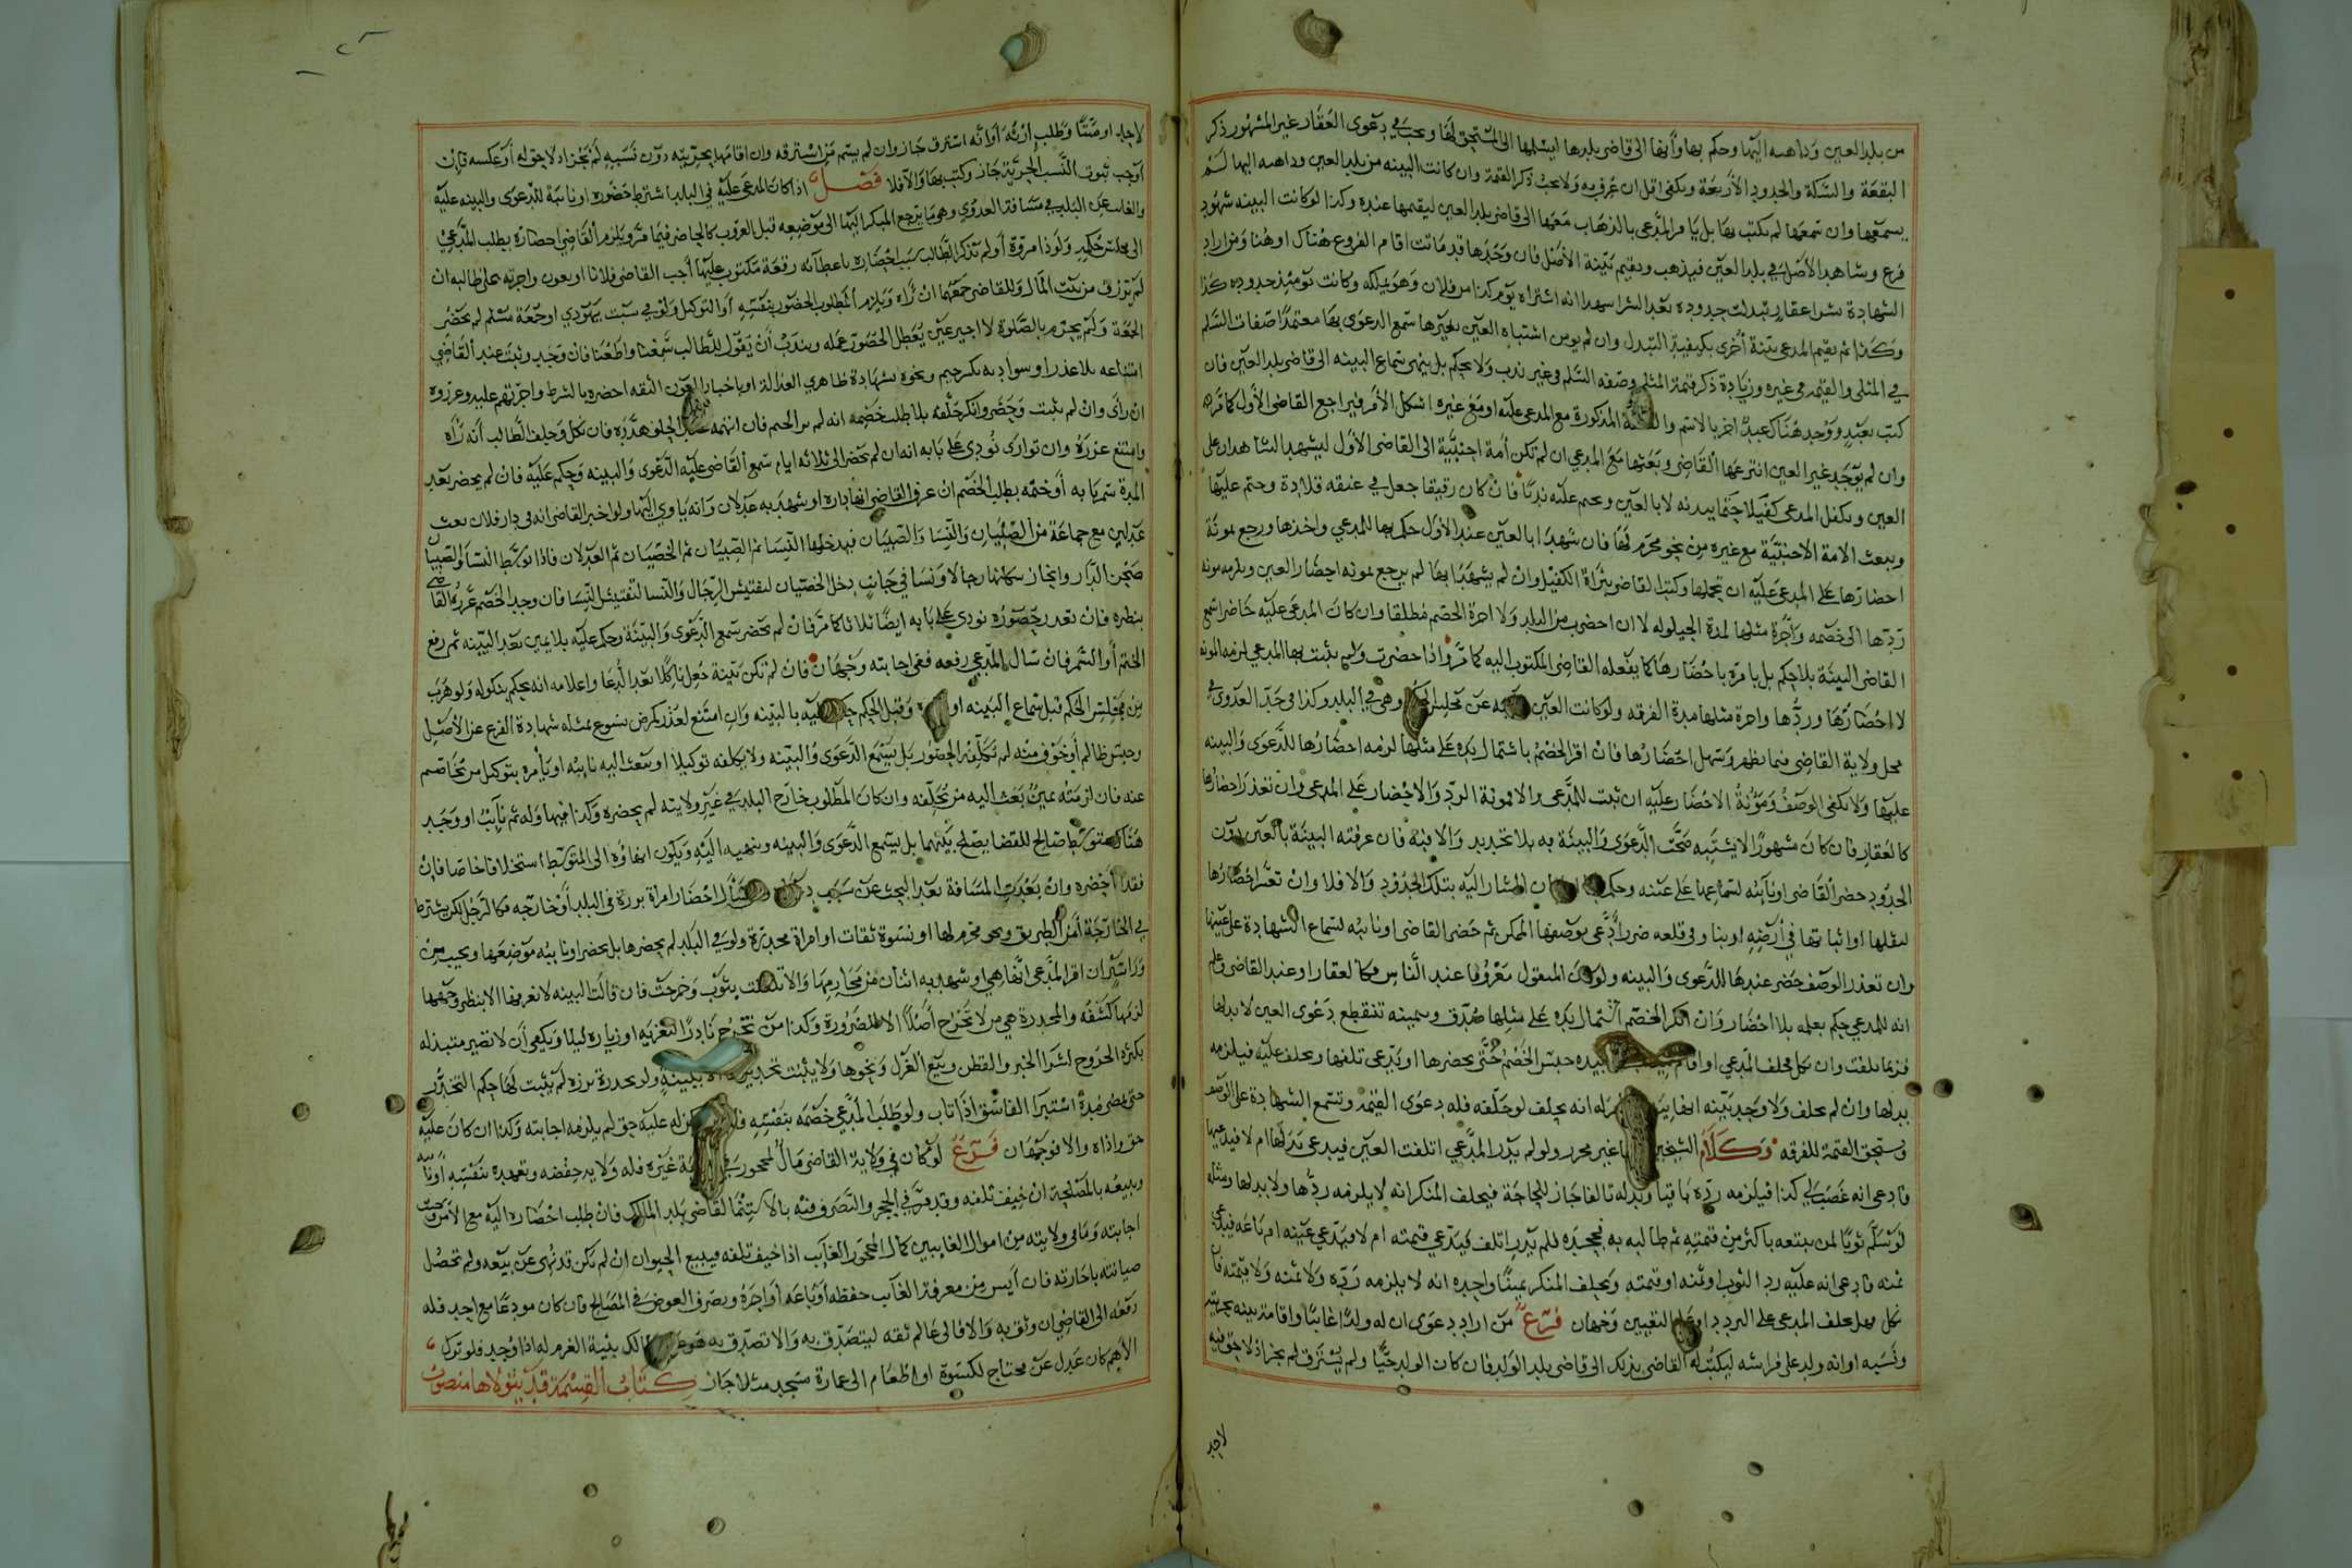 من بلد العين وداهسه اليها وحكم بها وأنها الى قاضى بلدها ليسلمها الى المستحق لها ويجب في دعوى العقار غير المشهور ذكر
البقعة والسكة والحدود الأربعة ويكفى اقل ان عرف به ولا يجب ذكر القيمة وان كانت البينه من بلد العين وداهسه اليها لم
يسمعها وان سمعها لم يكتب بها بل يامر المدعى بالذهاب معها الى قاضى بلد العين ليقيمها عنده وكذا لو كانت البينه شهود
فرع وشاهد الأصل في بلد العين فيذهب ويقيم بينة الأصل فان وجدها قد ماتت اقام الفروع هناك او هنا ومن اراد
الشهادة بشرا عقار تبدلت حدوده بعد الشرا شهدا انه اشتراه يوم كذا من فلان وهو يملكه وكانت يومئذ حدوده كذا
وكذا ثم يقيم المدعى بينة أخرى بكيفية التبدل وان لم يومن اشتباه العين بغيرها سمع الدعوى بها معتمدا صفات السلم
في المثلى والقيمه في غيره وزيادة ذكر قيمة المثلى وصفه السلم وغيره ندب ولا يحكم بل ينهى سماع البينه الى قاضى بلد العين فان
كتب بعبد ووجد هناك عبد اخر بالاسم والصفة المذكورة مع المدعى عليه او مع غيره اشكل الأمر فيراجع القاضى الأول كما مر
وان لم يوجد غير العين انتزعها القاضى وبعثها مع المدعي ان لم تكن أمة اجنبية الى القاضى الأول ليشهد الشاهدان على
العين ويكفل المدعى كفيلا حتما ببدنه لا بالعين ويختم عليه ندبا فان كان رقيقا جعل في عنقه قلادة وختم عليها
ويبعث الامة الاجنبية مع غيره من نحو محرم لها فان شهدا بالعين عند الأول حكم بها للمدعي واخذها ورجع بمونة
احضارها على المدعى عليه ان تحملها وكتب القاضى ببراة الكفيل وان لم يشهدا بها لم يرجع بمونه احضار العين ويلزمه مونه
ردها الى خصمه وأجرة مثلها لمدة الحيلوله لا ان احضرت من البلد ولا اجرة الخصم مطلقا وان كان المدعى عليه حاضرا سمع
القاضى البينة بلا حكم بل يامره باحضارها كما يفعله القاضى المكتوب اليه كما مر واذا حضرت ولم يثبت بها المدعي لزمه المونه
لاحضارها وردها واجرة مثلها مدة الفرقه ولو كانت العين عن مجلس الحكم وهى في البلد وكذا في حد العدوى في
محل ولاية القاضى فيما يظهر وسهل احضارها فان اقر الخصم باشتمال يده على مثلها لزمه احضارها للدعوى والبينه
عليها ولا يكفى الوصف ومؤنة الاحضار عليه ان ثبت للمدعى والا فمونة الرد والاحضار على المدعى وان تعذر احضارها
كالعقار فان كان مشهورا لا يشتبه صحت الدعوى والبينة به بلا تحديد والا فبه فان عرفته البينة بالعين دون
الحدود حضر القاضى او نائبه لسماعها على عينه وحكم ان المشار اليه بتلك الحدود والا فلا وان تعسر احضارها
لثقلها او اثباتها في أرضه او بنا وفى قلعه ضرر ادعى بوصفها الممكن ثم حضر القاضى او نائبه لسماع الشهادة على عينها
وان تعذر الوصف حضر عندها للدعوى والبينه ولو كان المنقول معروفا عند الناس فكالعقار او عند القاضى وعلم
انه للمدعي حكم بعلمه بلا احضار وان انكر الخصم اشتمال يده على مثلها صدق وبيمينه تنقطع دعوى العين لا بدلها
فربما تلفت وان نكل فحلف المدعي او اقام بيده حبس الخصم حتى يحضرها او يدعى تلفها ويحلف عليه فيلزمه
بدلها وان لم يحلف ولا وجد بينه انه يحلف لو حلفه فله دعوى القيمة وتسمع الشهادة على الوصف
ويستحق القيمة للفرقه وكلام الشيخين غير محرر ولو لم يدر المدعي اتلفت العين فيدعى بدلها ام لا فيدعيها
فادعى انه غصب لي كذا فيلزمه رده باقيا وبدله تالفا جاز للحاجة فيحلف المنكر انه لا يلزمه ردها ولا بدلها ومثله
لو سلم ثوبا لمن يبيعه باكثر من قيمته ثم طالبه به فجحده فلم يدر اتلف فيدعي قيمته ام لا فيدعي عينه ام باعه فيدعي
ثمنه فادعى انه عليه رد الثوب او ثمنه او قيمته ويحلف المنكر يمينا واحده انه لا يلزمه رده ولا ثمنه ولا قيمته فان
نكل فهل يحلف المدعى على التردد او على التعيين وجهان فرع من اراد دعوى ان له ولدا غائبا واقامة بينه بحريته
ونسبه او انه ولد على فراشه ليكتب له القاضى بذلك الى قاضى بلد الولد فان كان الولد حيا ولم يسترق لم يجز اذ لا حق فيه
لاحد
لاحد او ميتا وطلب إرثه او انه استرق جاز وان لم يسم من استرقه وان اقامها بحريته دون نسبه لم يجز اذ لا حق له أو عكسه فإن
أوجب ثبوت النسب الحرية جاز وكتب بها والا فلا فصل اذا كان المدعى عليه في البلد اشترط حضوره او نائبه للدعوى والبينه عليه
والغائب عن البلد في مسافة العدوى وهو ما يرجع المبكر اليها الى موضعه قبل الغروب كالحاضر فيما مر ويلزم القاضي احضاره بطلب المدعي
الى مجلس حكمه ولو ذا مروة أو لم يذكر الطالب سبب احضاره باعطائه رقعة مكتوب عليها أجب القاضى فلانا او بعون واجرته على طالبه ان
لم يرزق من بيت المال وللقاضي جمعها ان رآه ويلزم المطلوب الحضور بنفسه أو التوكيل ولو في سبت يهودي او جمعة مسلم لم يحضر
الجمعة ولم يحرم بالصلوة لا اجير عين يعطل الحضور عمله ويندب أن يقول للطالب سمعنا واطعنا فان وجد وثبت عند القاضي
امتناعه بلا عذر او سوادبه بكسر ختم ونحوه بشهادة ظاهري العدالة او باخبار العون الثقه احضره بالشرط واجرتهم عليه وعزره
ان رأى وان لم يثبت وحضر وانكر حلفه بلا طلب خصمه انه لم ير الختم فان اتهمه الحلف هدده فان نكل وحلف الطالب أنه رآه
وامتنع عزره وان توارى نودي على بابه انه ان لم يحضر الى ثلاثه ايام سمع القاضى عليه الدعوى والبينه وحكم عليه فان لم يحضر بعد
المدة سمر بابه أو ختمه بطلب الخصم ان عرف القاضى انها داره او شهد به عدلان وانه ياوي اليها ولو اخبر القاضى انه فى دار فلان بعث
عدلين مع جماعة من الصبيان والنسا والخصيان فيدخلها النسا ثم الصبيان ثم الخصيان ثم العدلان فاذا توسط النسا والصبيان
صحن الدار وانحاز سكانها رجالا ونسا في جانب دخل الخصيان لتفتيش الرجال والنسا لتفتيش النسا فان وجد الخصم عزره القاضي
بنظره فان تعذر حضوره نودى على بابه ايضا ثلاثا كما مر فان لم يحضر سمع الدعوى والبينة وحكم عليه بلا يمين بعد البينه ثم رفع
الختم أو السمر فان سال المدعى رفعه ففى اجابته وجهان فان لم تكن بينة جعل ناكلا بعد الدعا واعلامه انه يحكم بنكوله ولو هرب
من مجلس الحكم قبل سماع البينه او وقبل الحكم حكم عليه بالبينه وان امتنع لعذر كمرض يسوغ بمثله شهادة الفرع عن الأصل
وحبس ظالم أو خوف منه لم يكلفه الحضور بل يسمع الدعوى والبينه ولا يكلفه توكيلا او يبعث اليه نايبه او يأمره بتوكيل من يخاصم
عنه فان لزمته يمين بعث اليه من يحلفه وان كان المطلوب خارج البلد في غير ولايته لم يحضره وكذا فيها وله ثم نايب او وجد
هناك متوسط صالح للقضا يصلح بينهما بل يسمع الدعوى والبينه وينهيه اليه ويكون انهاؤه الى المتوسط استخلافا خاصا فان
فقدا احضره وان بعدت المسافة بعد البحث عن سبب احضار امراة برزة فى البلد أو خارجه فكالرجل لكن يشترط
في الخارجة أمن الطريق ونحو محرم لها او نسوة ثقات او امراة مخدرة ولو في البلد لم يحضرها بل يحضر او نايبه موضعها ويجب من
وراستر ان اقر المدعى انها هي او شهد به اثنان من محارمها والا تلففت بثوب وخرجت فان قالت البينه لا نعرفها الا بنظر وجهها
لزمها كشفه والمخدرة هي من لا تخرج أصلا الا لضرورة وكذا من تخرج نادرا لتعزيه او زيارة ليلا ويكفى أن لا تصير متبذله
بكثرة الخروج لشرا الخبز والقطن وبيع الغزل ونحوها ولا يثبت تخديرها الا ببينة ولو تخدرت برزة لم يثبت لها حكم التخدر
حتى يمضى مدة استبرا الفاسق اذا تاب ولو طلب المدعي خصمه بنفسه له عليه حق لم يلزمه اجابته وكذا ان كان عليه
حق واداه والا فوجهان فرع لو كان في ولاية القاضى مال لمحجور في غيره فله ولايه حفظه وتعهده بنفسه او نائبه
وبيعه بالمصلحة ان خيف تلفه وقد مر في الحجر والتصرف فيه بالاستنما لقاضى بلد المالك فان طلب احضاره اليه مع الأمن وجبت
اجابته وما فى ولايته من اموال الغايبين كمال المحجور الغايب اذا خيف تلفه فيبيع الحيوان ان لم يكن قد نهى عن بيعه ولم تحصل
صيانته باجارته فان أيس من معرفة الغايب حفظه أو باعه أو أجره ويصرف العوض في المصالح فان كان مودعا مع احد فله
دفعه الى القاضي ان وثق به والا فالى عالم ثقه ليتصدق به والا تصدق به هو المالك بنية الغرم له اذا وجد فلو ترك
الاهم كان عدل عن محتاج لكسوة او اطعام الى عمارة مسجد مثلا جاز كتاب القسمة قد يتولاها منصوب